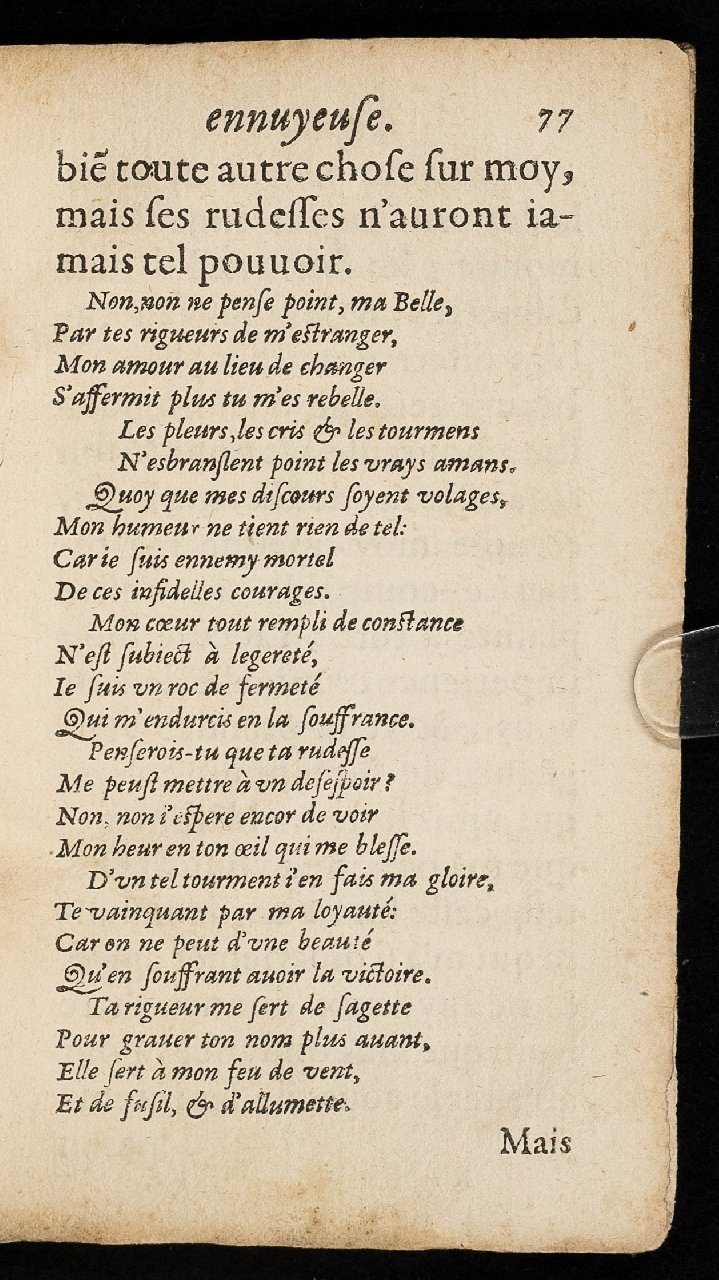 ennuyeuſe. 77
biẽ toute autre choſe ſur moy,
mais ſes rudeſſes n'auront ia-
mais tel pouuoir.
Non, non ne penſe point, ma Belle,
Par tes rigueurs de m'eſtranger,
Mon amour au lieu de changer
S'affermit plus tu m'es rebelle.
Les pleurs, les cris & les tourmens
N'esbranſlent point les vrays amans.
Quoy que mes diſcours ſoyent volages,
Mon humeur ne tient rien de tel:
Car ie ſuis ennemy mortel
De ces infidelles courages.
Mon cœur tout rempli de conſtance
N'eſt ſubiect à legereté,
Ie ſuis vn roc de fermeté
Qui m'endurcis en la ſouffrance.
Penſerois-tu que ta rudeſſe
Me peuſt mettre à vn deſeſpoir?
Non, non i'eſpere encor de voir
Mon heur en ton œil qui me bleſſe.
D'vn tel tourment i'en fais ma gloire,
Te vainquant par ma loyauté:
Car on ne peut d'vne beauté
Qu'en ſouffrant auoir la victoire.
Ta rigueur me ſert de ſagette
Pour grauer ton nom plus auant,
Elle ſert à mon feu de vent,
Et de fuſil, & d'allumette.
Mais